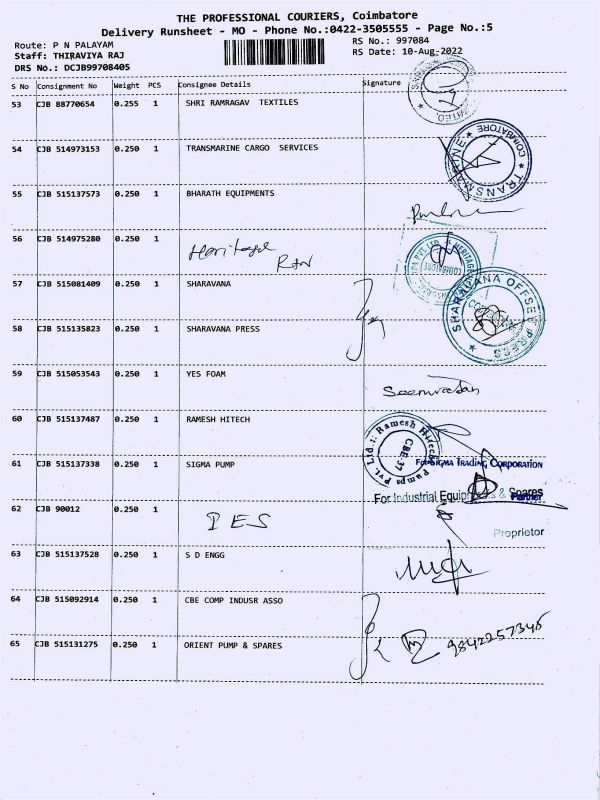 THE PROFESSIONAL COURIERS, Coimbatore
Delivery Runsheet - MO - Phone No.:0422-3505555 - Page No.:5
Route: P N PALAYAM
RS No.: 997084
Staff: THIRAVIYA RAJ
RS Date: 10-Aug-2022
DRS No.: DCJB99708405
S No Consignment No Weight PCS Consignee Details Signature
53 CJB 88770654 0.255 1 SHRI RAMRAGAV TEXTILES
54 CJB 514973153 0.250 1 TRANSMARINE CARGO SERVICES
TRANSMARINE ★ COIMBATORE ★
55 CJB 515137573 0.250 1 BHARATH EQUIPMENTS
56 CJB 514975280 0.250 1 Heritage
57 CJB 515081409 0.250 1 SHARAVANA
SHARAVANA OFFSET PRESS ★
58 CJB 515135823 0.250 1 SHARAVANA PRESS
59 CJB 515053543 0.250 1 YES FOAM
60 CJB 515137487 0.250 1 RAMESH HITECH
Ramesh Hitech Pumps Pvt. Ltd.
CBE-37
61 CJB 515137338 0.250 1 SIGMA PUMP
For SIGMA TRADING CORPORATION
Partner
For Industrial Equipments & Spares
62 CJB 90012 0.250 1 IES
Proprietor
63 CJB 515137528 0.250 1 S D ENGG
64 CJB 515092914 0.250 1 CBE COMP INDUSR ASSO
65 CJB 515131275 0.250 1 ORIENT PUMP & SPARES
9842257346